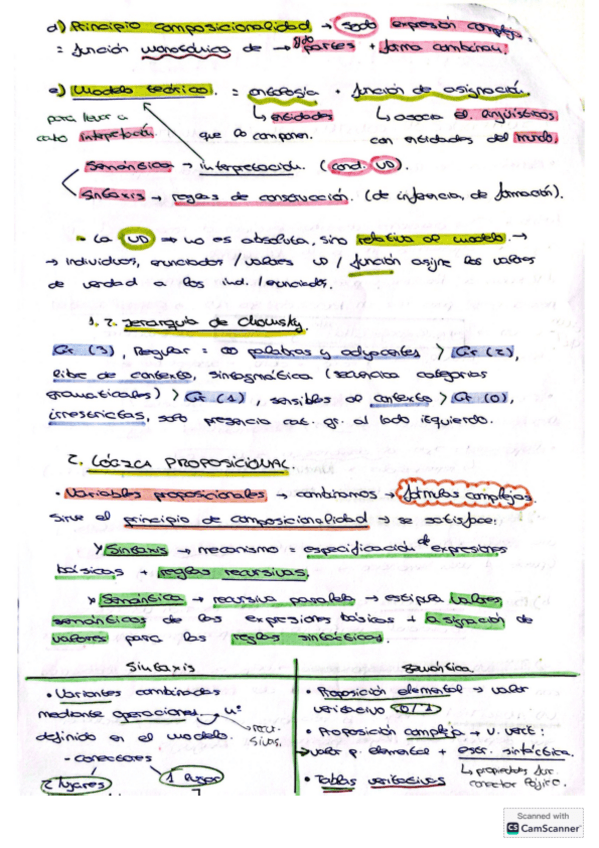 d) Principio composicionalidad → toda expresión compleja
= función monosémica de → partes + forma combinan.
e) Modelo teórico. = ontología + función de asignación.
para llevar a ↳ entidades ↳ asocia el. lingüísticos
cabo interpretación que lo componen. con entidades del mundo.
Semántica → interpretación. (cond. VD)
Sintaxis → reglas de construcción. (de inferencia, de formación).
- La VD → no es absoluta, sino relativa al modelo →
→ individuos, enunciados / valores VD / función asigne los valores
de verdad a los ind. / enunciados.
1. 2. Jerarquía de Chomsky.
Gr (3), Regular = ∞ palabras y adyacentes > Gr (2),
libre de contexto, sintagmática (secuencia categorías
gramaticales) > Gr (1), sensibles al contexto > Gr (0),
irrestrictas, solo presencia cat. gr. al lado izquierdo.
2. LÓGICA PROPOSICIONAL.
• Variables proposicionales → combinamos → fórmulas complejas.
Sirve el principio de composicionalidad → se satisface:
> Sintaxis → mecanismo = especificación de expresiones
básicas + reglas recursivas.
> Semántica → recursiva paralela → estipula valores
semánticos de las expresiones básicas + asignación de
valores para las reglas sintácticas.
Sintaxis
• Variantes combinadas
mediante operaciones nº
definido en el modelo. → recursivas.
- conectores
2 lugares 1 lugar
Semántica
• Proposición elemental → valor
veritativo 0/1
• Proposición compleja → v. verit:
→ valor p. elemental + estr. sintáctica.
↳ propiedades
conector lógico.
• Tablas veritativas
Scanned with
CS CamScanner